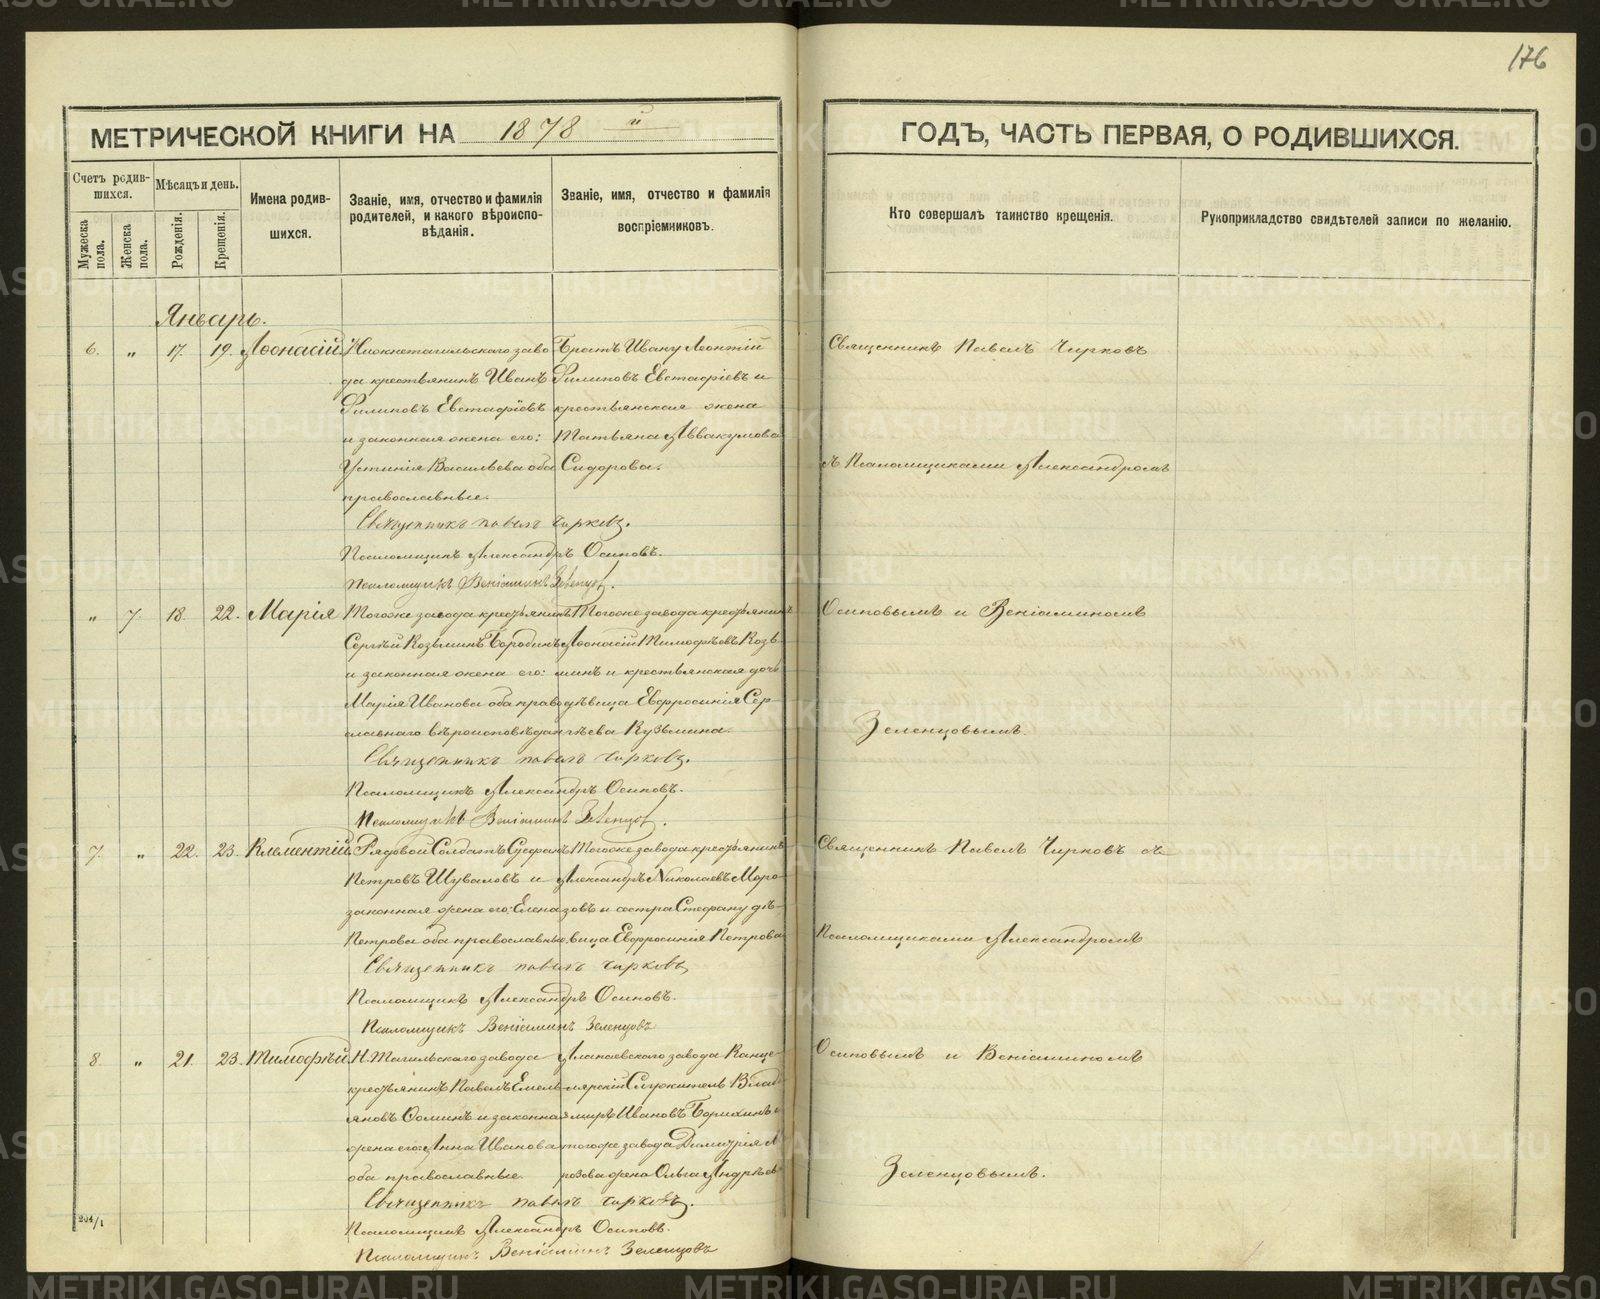 176
МЕТРИЧЕСКОЙ КНИГИ НА 1878 й
ГОДЪ, ЧАСТЬ ПЕРВАЯ, О РОДИВШИХСЯ.
Счетъ родив-
шихся.
Мужеска пола.
Женска пола.
Мѣсяцъ и день.
Рожденія.
Крещенія.
Имена родив-
шихся.
Званіе, имя, отчество и фамилія
родителей, и какого вѣроиспо-
вѣданія.
Званіе, имя, отчество и фамилія
воспріемниковъ.
Кто совершалъ таинство крещенія.
Рукоприкладство свидѣтелей записи по желанію.
Январь.
6. „ 17. 19. Аѳонасій
Нижнетагильскаго заво
да крестьянинъ Иванъ
Филиповъ Евстафіевъ
и законная жена его:
Устинія Васильева оба
православные.
Братъ Ивану Леонтій
Филиповъ Евстафіевъ и
крестьянская жена
Татьяна Аввакумова
Сидорова.
Священникъ Павелъ Чирковъ.
Псаломщикъ Александръ Осиповъ.
Псаломщикъ Веніаминъ Зеленцовъ.
Священникъ Павелъ Чирковъ
съ Псаломщиками Александромъ
Осиповымъ и Веніаминомъ
Зеленцовымъ.
„ 7. 18. 22. Марія
Тогоже завода крестьянинъ
Сергѣй Козьминъ Бородинъ
и законная жена его:
Марія Иванова оба право
славнаго вѣроисповѣдан
Тогоже завода крестьянинъ
Аѳонасій Тимофѣевъ Козь
минъ и крестьянская дочь
дѣвица Евфросинія Сер
гѣева Кузьмина.
Священникъ Павелъ Чирковъ.
Псаломщикъ Александръ Осиповъ.
Псаломщикъ Веніаминъ Зеленцовъ.
7. „ 22. 23. Климентій
Рядовой Солдатъ Стефанъ
Петровъ Шуваловъ и
законная жена его: Елена
Петрова оба православные
Тогоже завода крестьянинъ
Александръ Николаевъ Моро
зовъ и сестра Стефану дѣ-
вица Евфросинія Петрова
Священникъ Павелъ Чирковъ
Псаломщикъ Александръ Осиповъ.
Псаломщикъ Веніаминъ Зеленцовъ
Священникъ Павелъ Чирковъ съ
Псаломщиками Александромъ
Осиповымъ и Веніаминомъ
Зеленцовымъ.
8. „ 21. 23. Тимофѣй
Н. Тагильскаго завода
крестьянинъ Павелъ Емель
яновъ Ѳоминъ и законная
жена его: Анна Иванова
оба православные.
Алапаевскаго завода Канце
лярскій Служитель Влад
миръ Ивановъ и
тогоже завода Димитрія
жена Ольга Андрѣев
Священникъ Павелъ Чирковъ.
Псаломщикъ Александръ Осиповъ.
Псаломщикъ Веніаминъ Зеленцовъ
204/1
METRIKI.GASO-URAL.RU